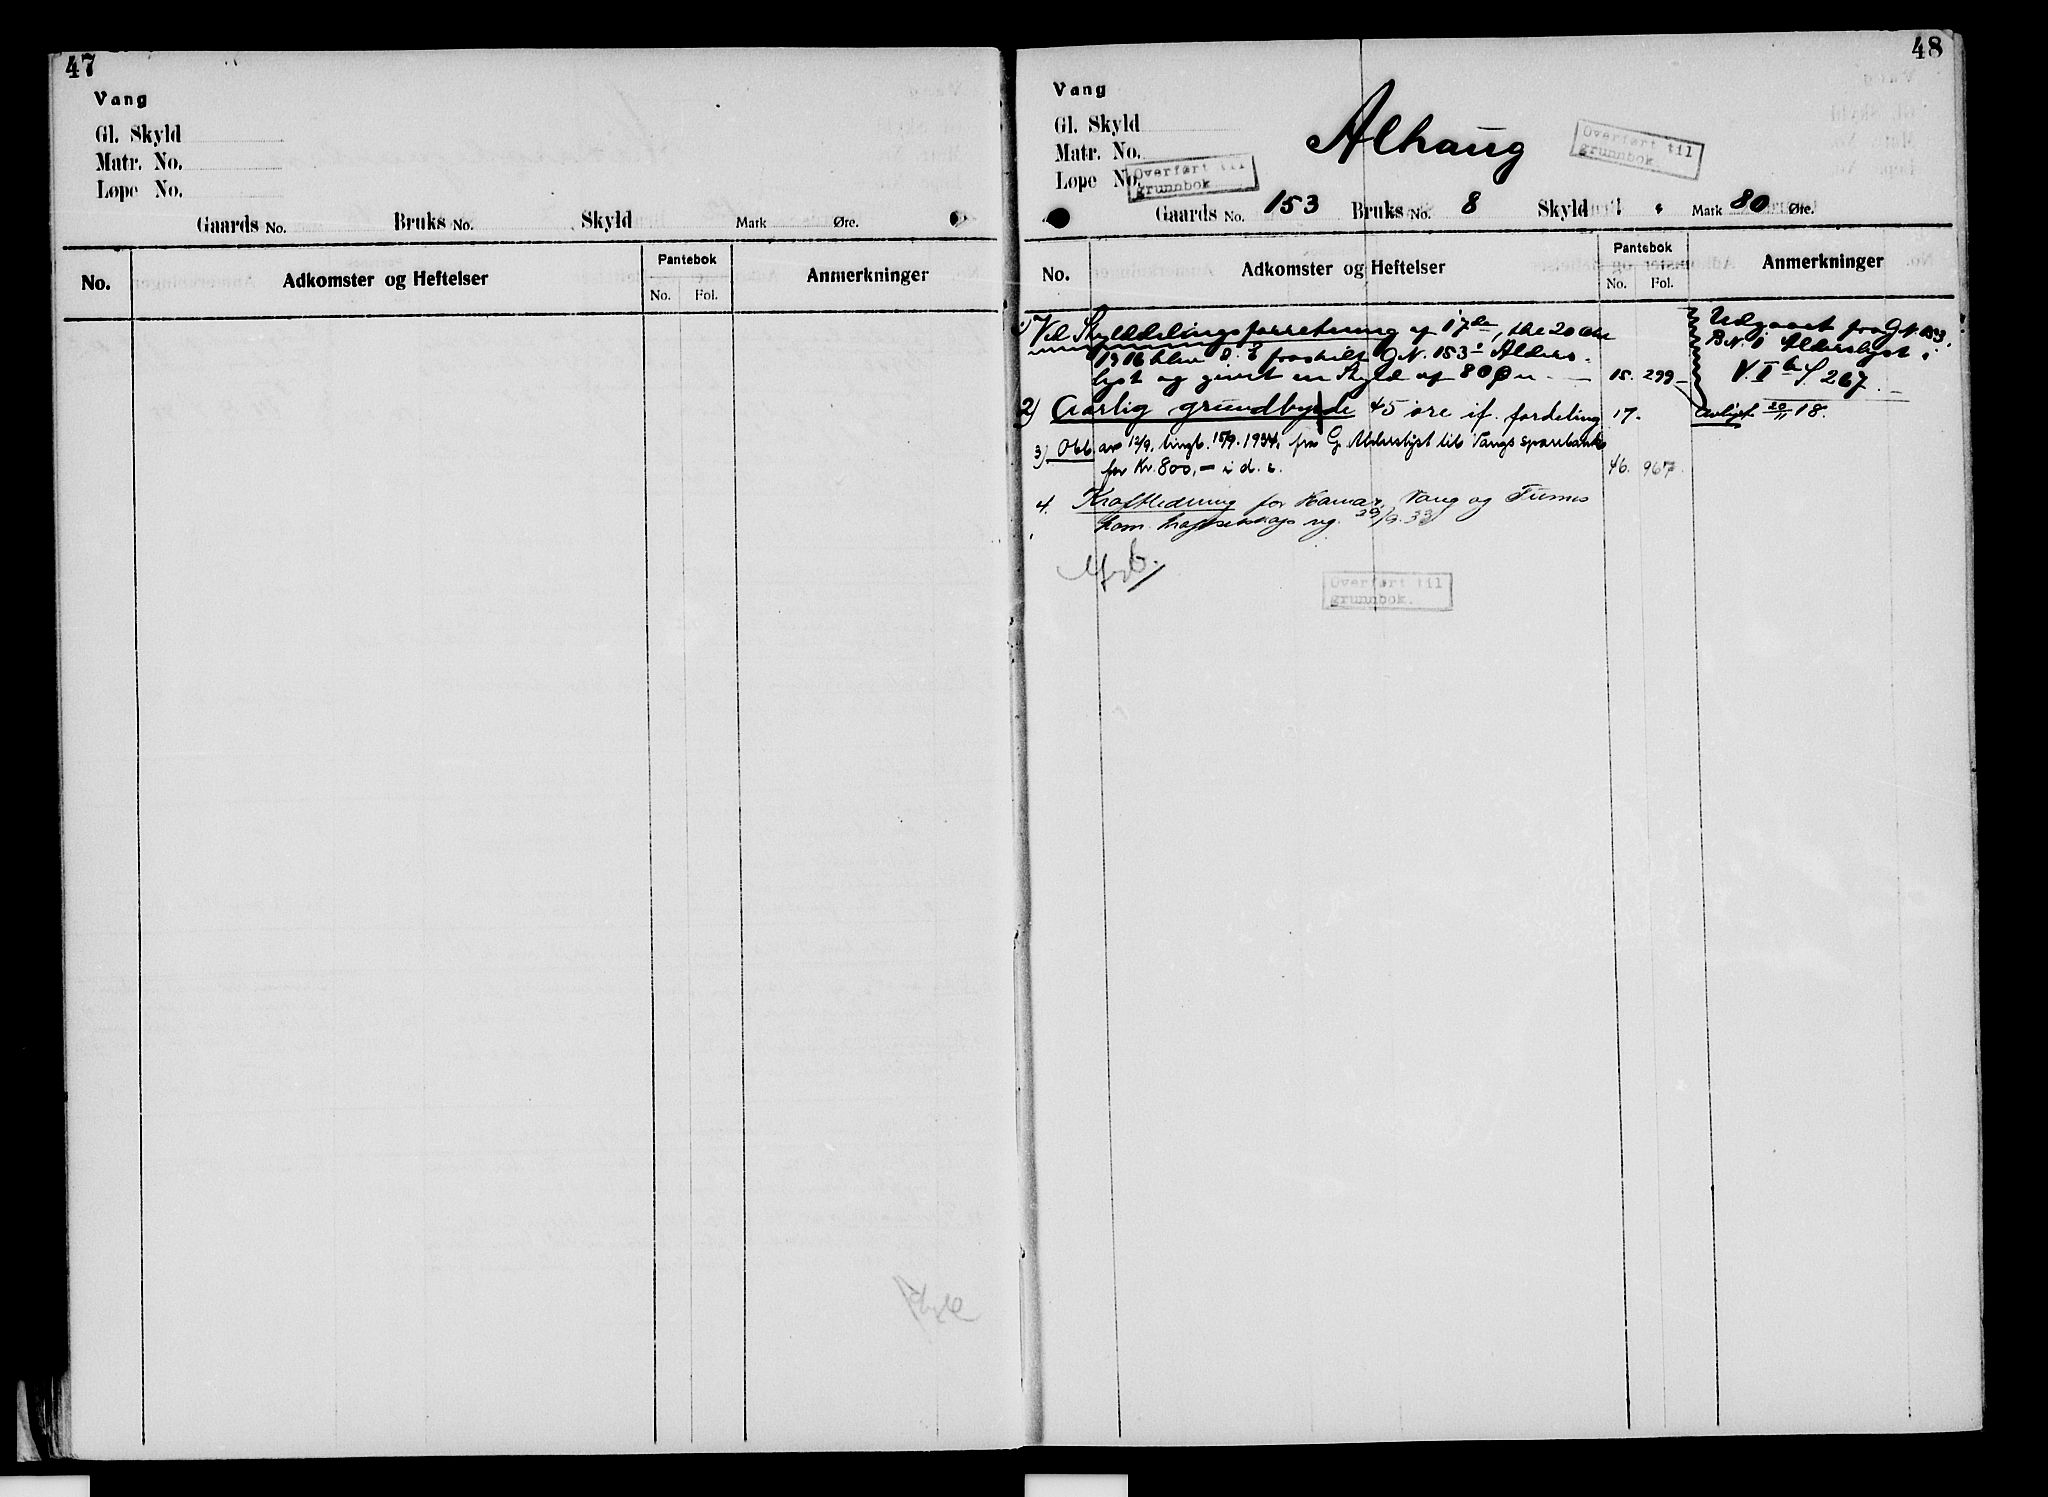 47
Vang
Gl. Skyld
Matr. No.
Løpe No.
Gaards No. Bruks No. Skyld Mark Øre.
No. Adkomster og Heftelser Pantebok Anmerkninger
No. Fol.
48
Vang
Gl. Skyld
Matr. No.
Løpe No.
Alhaug
Overført til
grunnbok.
Overført til
grunnbok
Gaards No. 153 Bruks No. 8 Skyld Mark 80 Øre.
No. Adkomster og Heftelser Pantebok Anmerkninger
No. Fol.
1) Ved Skylddelingsforretning af 17de, thl 20
1916 blev d. E fraskilt G.N. 153 1 Alders-
lyst og givet en Skyld af 80 Øre 15. 299
Udgaaet fra G.N. 153.
B.N. 1 Alderslyst i
V. I b f 267
2) Aarlig grundbyrde 45 øre if. fordeling 17. avlyst 20/11 18.
3) Obl. av 12/9, tingl. 15/9. 1934, fra G. Alderslyst til Vangs sparebank
for Kr. 800,- i d. e. 46. 967.
4. Kraftledning for Hamar, Vang og Furnes
kom. kraftselskap 29/9.33
Overført til
grunnbok.